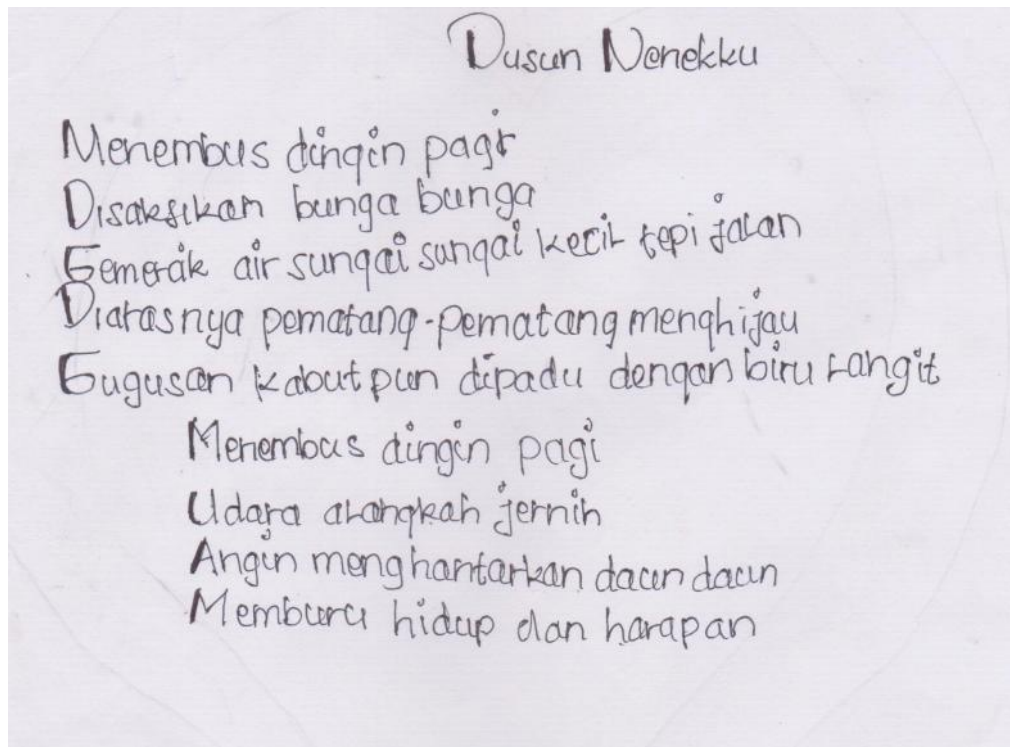 Dusun Nenekku
Menembus dingin pagi
Disaksikan bunga bunga
Gemerak air sungai sungai kecil tepi jalan
Diatasnya pematang-pematang menghijau
Gugusan kabut pun dipadu dengan biru langit
Menembus dingin pagi
Udara alangkah jernih
Angin menghantarkan daun daun
Memburu hidup dan harapan